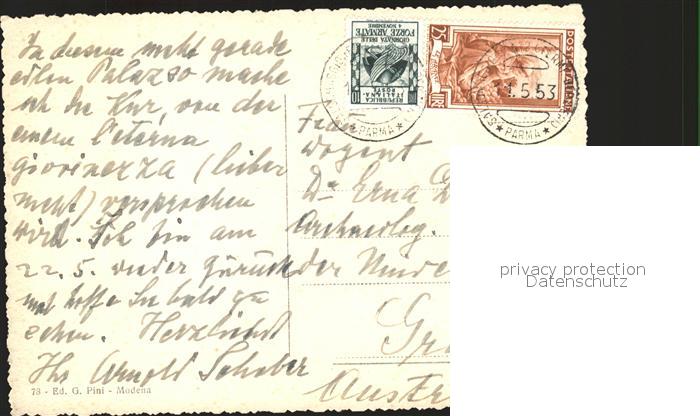 In diesem nicht gerade
edlen Palazzo mache
ich die Kur, von der
einem l'eterna
giovinezza (lieber
nicht) versprochen
wird. Ich bin am
22. 5. wieder zurück
und hoffe Sie bald zu
sehen. Herzlichst
Ihr Arnold Schober
78 - Ed. G. Pini - Modena
GIORNATA DELLE
FORZE ARMATE
4 NOVEMBRE
REPUBBLICA
ITALIANA
POSTE
10
POSTE ITALIANE
LIRE 25
PARMA
11.5.53
PARMA
Dozent
Dr Erna
Archaeolog.
der Univ
Gra
Austr
privacy protection
Datenschutz